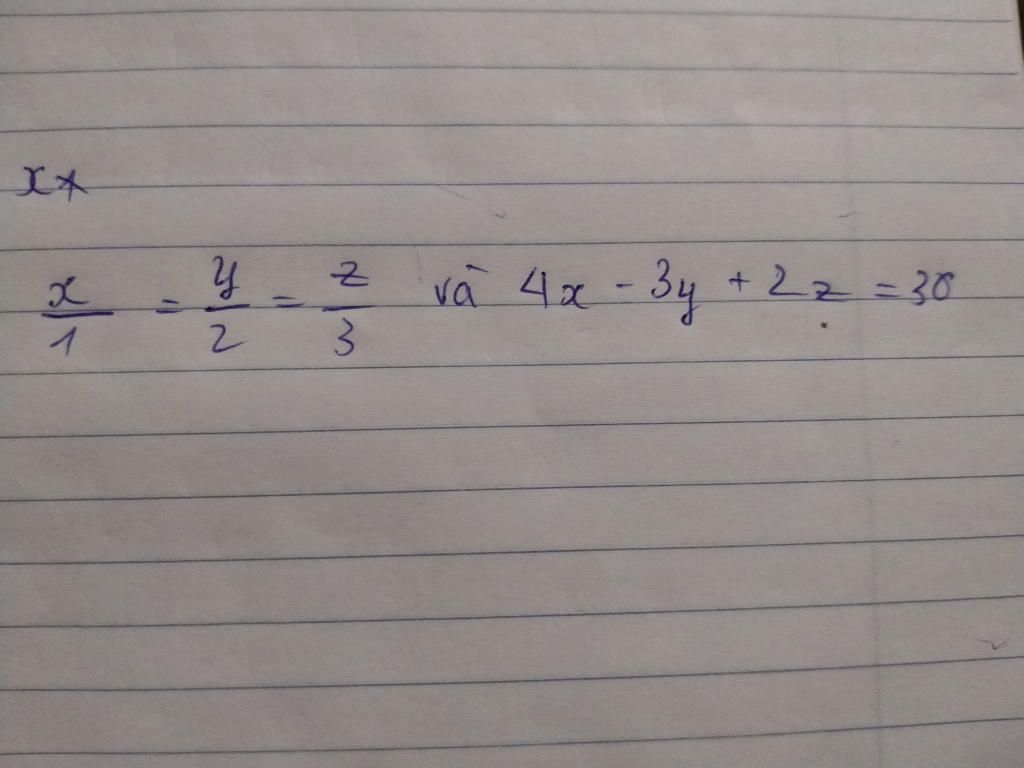 x *
x/1 = y/2 = z/3 và 4x - 3y + 2z = 30